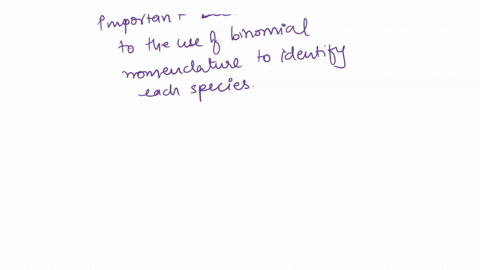 Important
to the use of binomial
nomenclature to identify
each species.